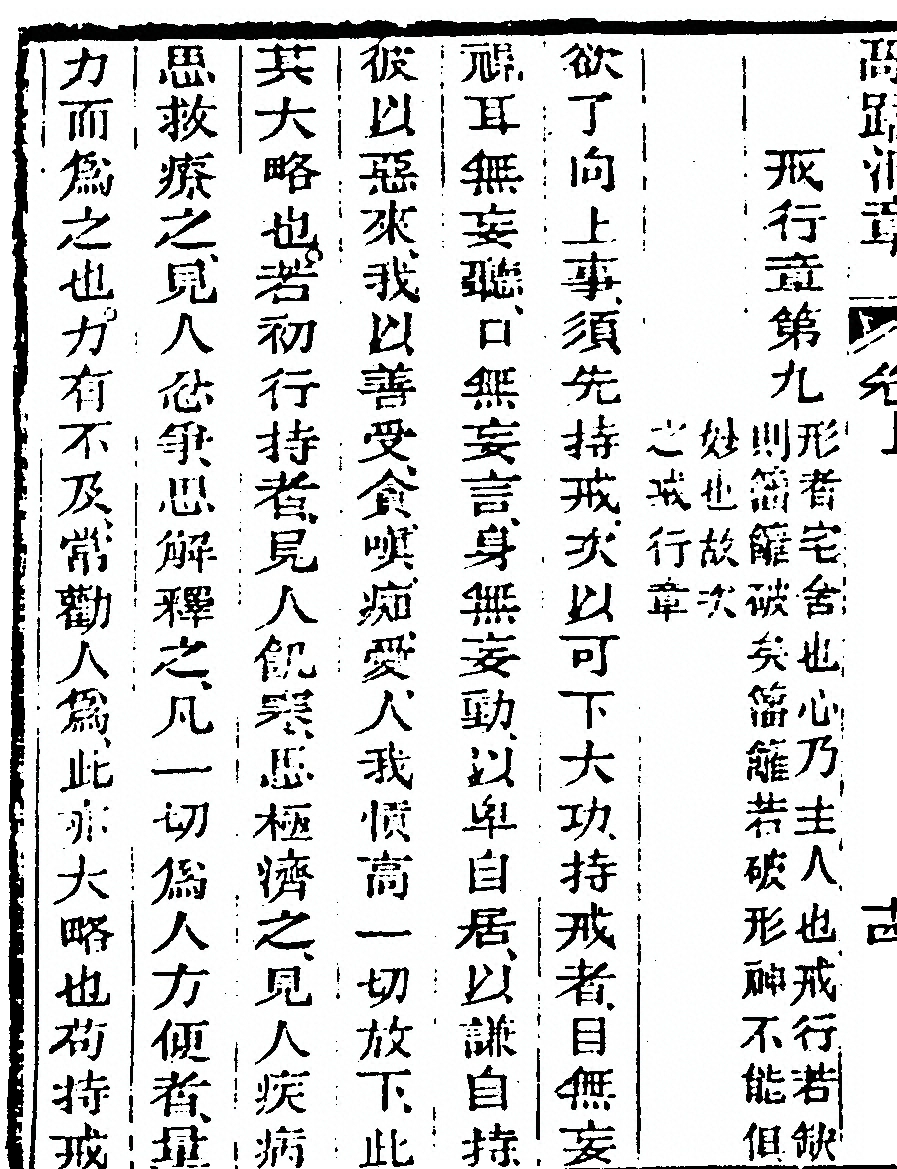 戒行章第九
形者宅舍也心乃主人也戒行若缺
則籓籬破矣籓籬若破形神不能俱
妙也故次
之戒行章
欲了向上事須先持戒次以可下大功持戒者目無妄
視耳無妄聽口無妄言身無妄動以卑自居以謙自持
彼以惡來我以善受貪嗔痴愛人我憤高一切放下此
其大略也若初行持者見人飢寒思極濟之見人疾病
思救療之見人忿爭思解釋之凡一切為人方便者量
力而為之也力有不及常勸人為此亦大略也苟持戒